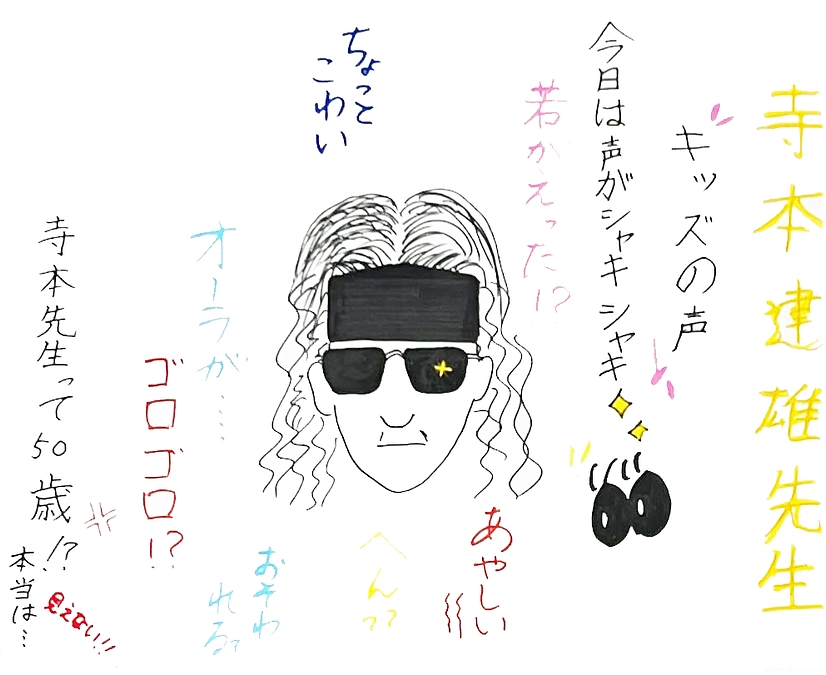 寺本建雄先生
キッズの声
今日は声がシャキシャキ
若がえった!?
ちょっと
こわい
オーラが……
ゴロゴロ!?
寺本先生って50歳!?
本当は…
見えない!!
あやしい
へん??
おそわ
れるっ